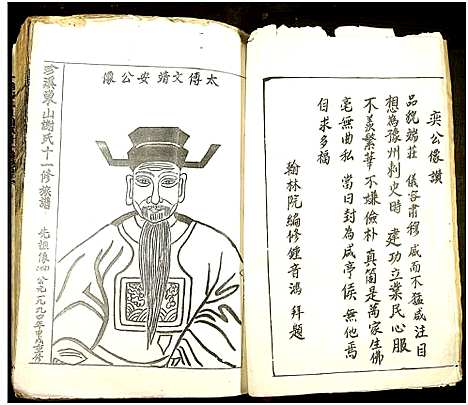 奕公像讚
品貌端莊 儀容肅穆 威而不猛咸注目
想為豫州刺史時 建功立業民心服
不羨繁華不嫌儉朴 真箇是萬家生佛
毫無曲私 當日封為咸亭侯 無他焉
自求多福
翰林院編修鍾音鴻 拜題
太傅文靖安公像
珍溪東山謝氏十一修族譜
先祖像(四) 公元一九九四年甲戌